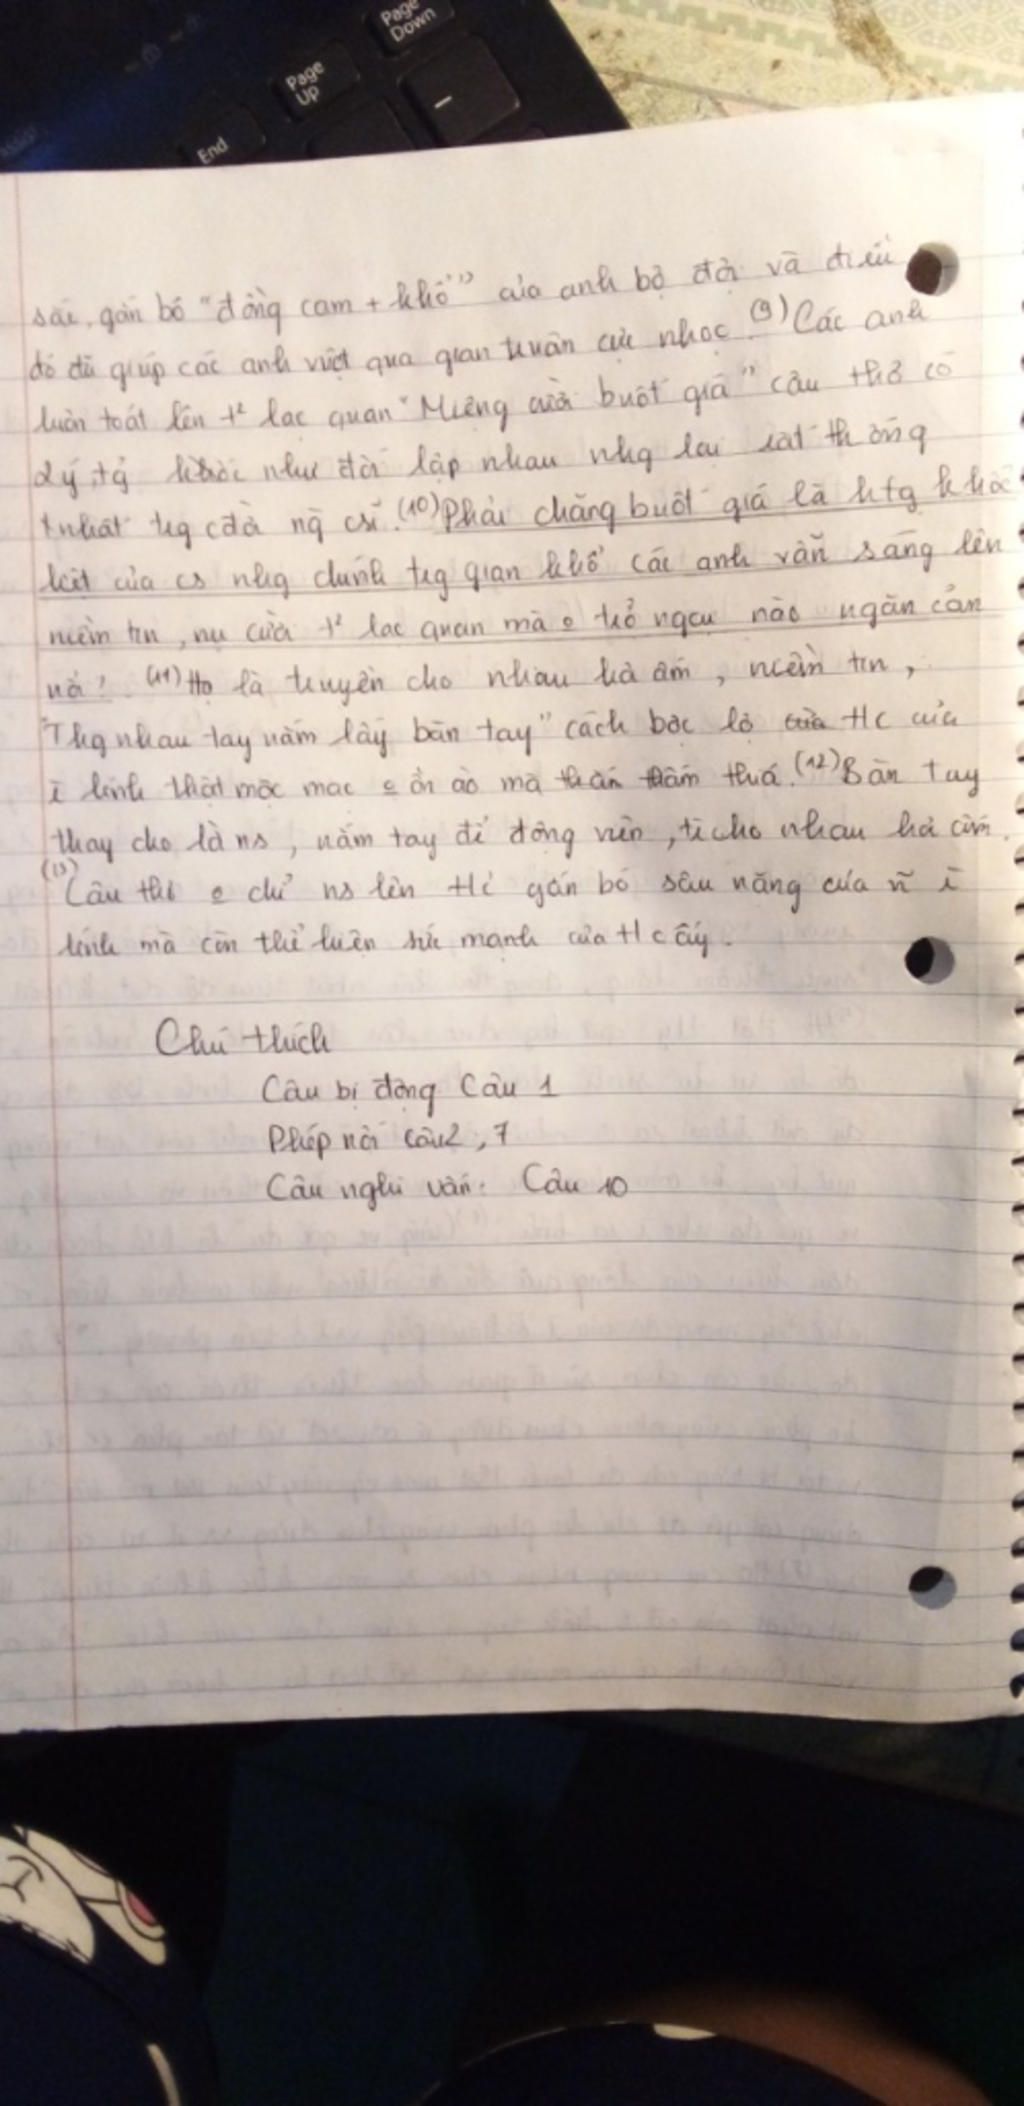 Page Down
Page Up
End
gắn bó "đồng cam + khổ" của anh bộ đội và điều
đó đã giúp các anh vượt qua gian truân cực nhọc. (9) Các anh
luôn toát lên t² lạc quan "Miệng cười buốt giá" câu thơ có
2 ý tg như đối lập nhau nhg lại rất thống
nhất trg cđ ng csĩ. (10) Phải chăng buốt giá là htg khắc
liệt của cs nhg chính trg gian khổ các anh vẫn sáng lên
niềm tin, nụ cười t² lạc quan mà o trở ngại nào ngăn cản
nổi? (11) Họ là truyền cho nhau hơi ấm, niềm tin,
"Thg nhau tay nắm lấy bàn tay" cách bộc lộ của t/c của
lính thật mộc mạc o ồn ào mà thấm thía. (12) Bàn tay
thay cho lời ns, nắm tay để động viên, tr cho nhau hơi ấm.
(13) Câu thơ o chỉ ns lên t/c gắn bó sâu nặng của
lính mà còn thể hiện sức mạnh của t/c ấy.
Chú thích
Câu bị động Câu 1
Phép nối câu 2, 7
Câu nghi vấn: Câu 10